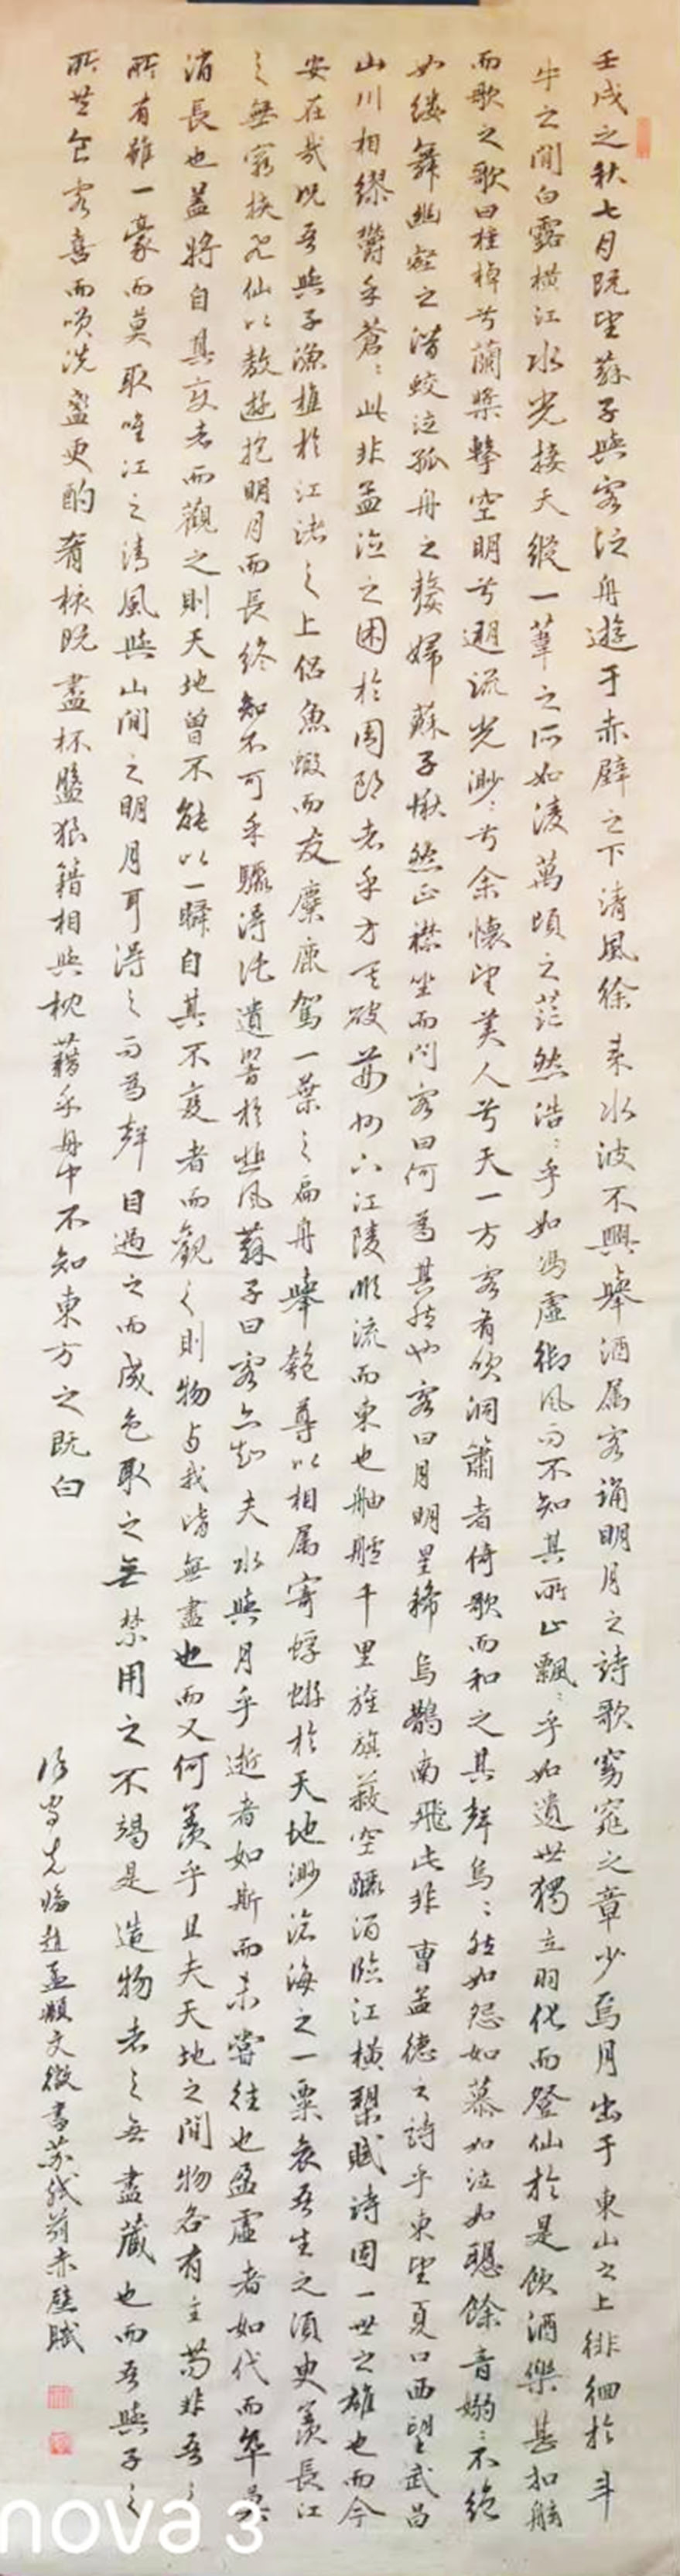 壬戌之秋七月既望蘇子與客泛舟遊于赤壁之下清風徐来水波不興舉酒属客誦明月之詩歌窈窕之章少焉月出于東山之上徘徊於斗
牛之間白露橫江水光接天縱一葦之所如凌萬頃之茫然浩〻乎如馮虛御風而不知其所止飄〻乎如遺世獨立羽化而登仙於是飲酒樂甚扣舷
而歌之歌曰桂棹兮蘭槳擊空明兮遡流光渺〻兮余懷望美人兮天一方客有吹洞簫者倚歌而和之其聲烏〻然如怨如慕如泣如聽餘音嫋〻不絶
如縷舞幽壑之潛蛟泣孤舟之嫠婦蘇子愀然正襟坐而問客曰何為其然也客曰月明星稀烏鵲南飛此非曹孟德之詩乎東望夏口西望武昌
山川相繆鬱乎蒼〻此非孟德之困於周郎者乎方其破荊州下江陵順流而東也舳艫千里旌旗蔽空釃酒臨江橫槊賦詩固一世之雄也而今
安在哉况吾與子漁樵於江渚之上侣魚蝦而友麋鹿駕一葉之扁舟舉匏尊以相属寄蜉蝣於天地渺滄海之一粟哀吾生之須臾羨長江
之無窮挾飛仙以敖遊抱明月而長終知不可乎驟得託遺響於悲風蘇子曰客亦知夫水與月乎逝者如斯而未嘗往也盈虛者如代而卒莫
消長也盖將自其变者而觀之則天地曾不能以一瞬自其不变者而觀之則物与我皆無盡也而又何羨乎且夫天地之間物各有主苟非吾之
所有雖一豪而莫取唯江之清風與山間之明月耳得之而為聲目遇之而成色取之無禁用之不竭是造物者之無盡藏也而吾與子之
所共食客喜而笑洗盞更酌肴核既盡杯盤狼籍相與枕藉乎舟中不知東方之既白
先臨趙孟頫文徵書苏軾前赤壁賦
nova 3